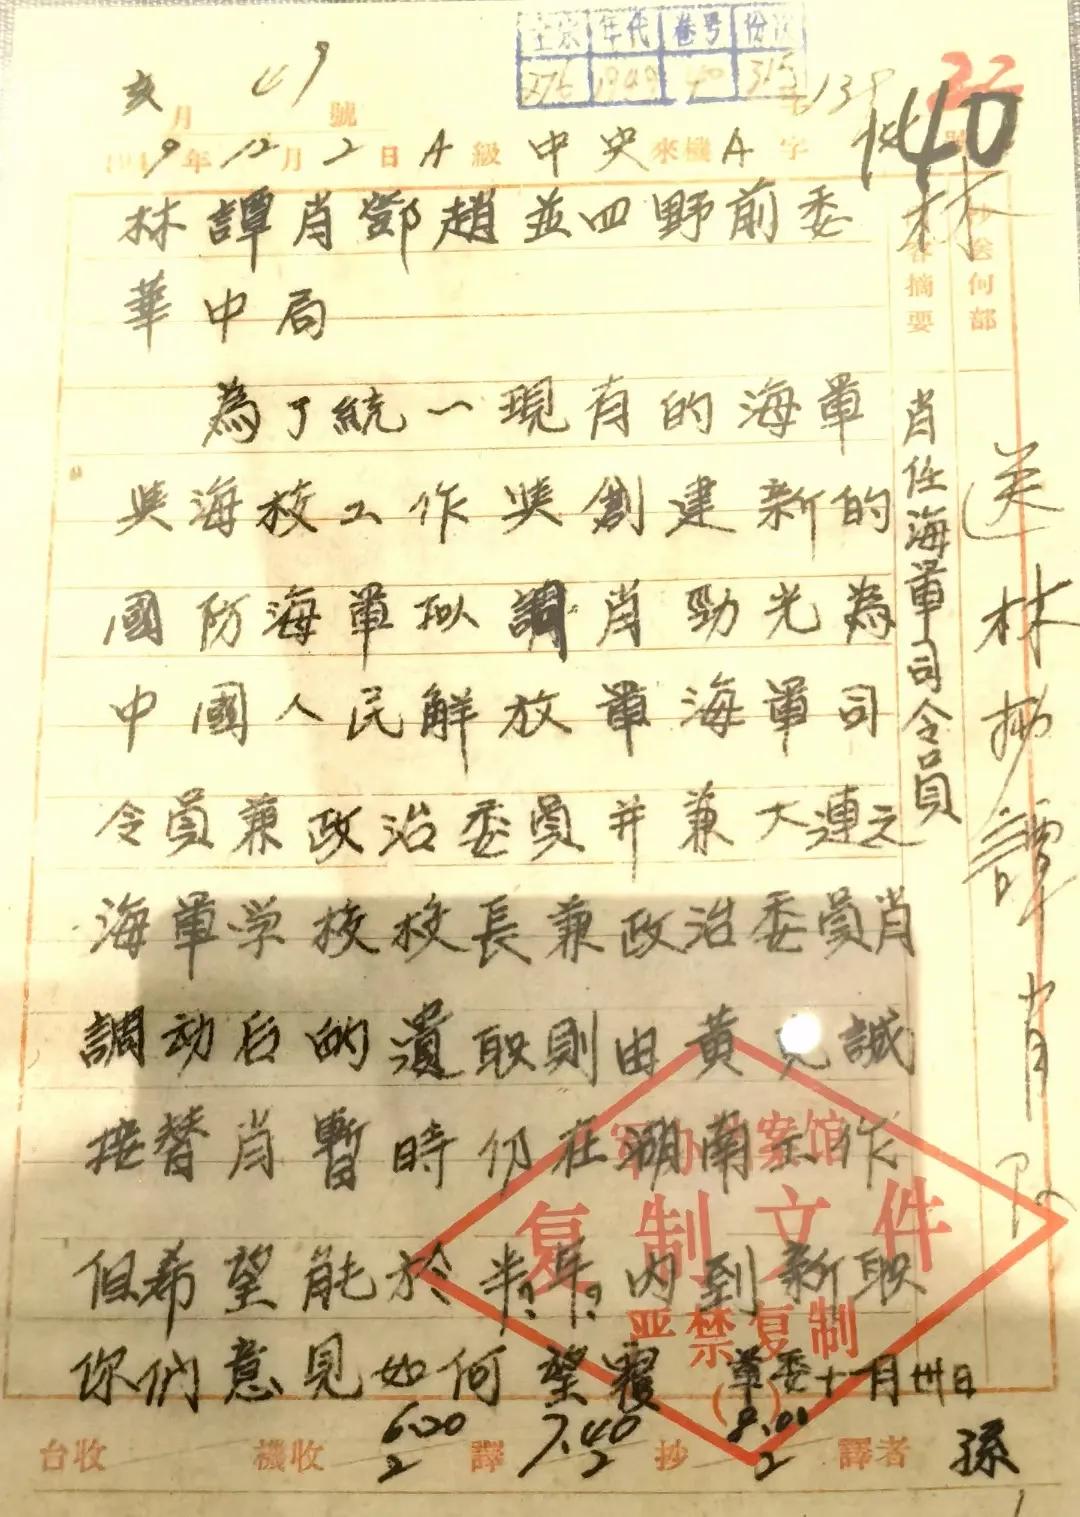 全宗 年代 卷号 份次
276 1949 40 315
22
139
140
亥月 49 號
1949年12月2日A級中央來機A字 號
林譚肖鄧趙並四野前委
華中局
為了統一現有的海軍
與海校工作與創建新的
國防海軍拟調肖勁光為
中國人民解放軍海軍司
令員兼政治委員并兼大連之
海軍学校校長兼政治委員肖
調动后的遺职則由黄克誠
接替肖暫時仍在湖南工作
但希望能於半?年?內到新职
你們意見如何望覆 軍委十一月卅日
台收 機收 6.20/2 譯 7.40/2 抄 8.00/2 譯者 孫
內容摘要
肖任海軍司令員
抄送何部
林
送林 譚肖
档案馆
复制文件
严禁复制